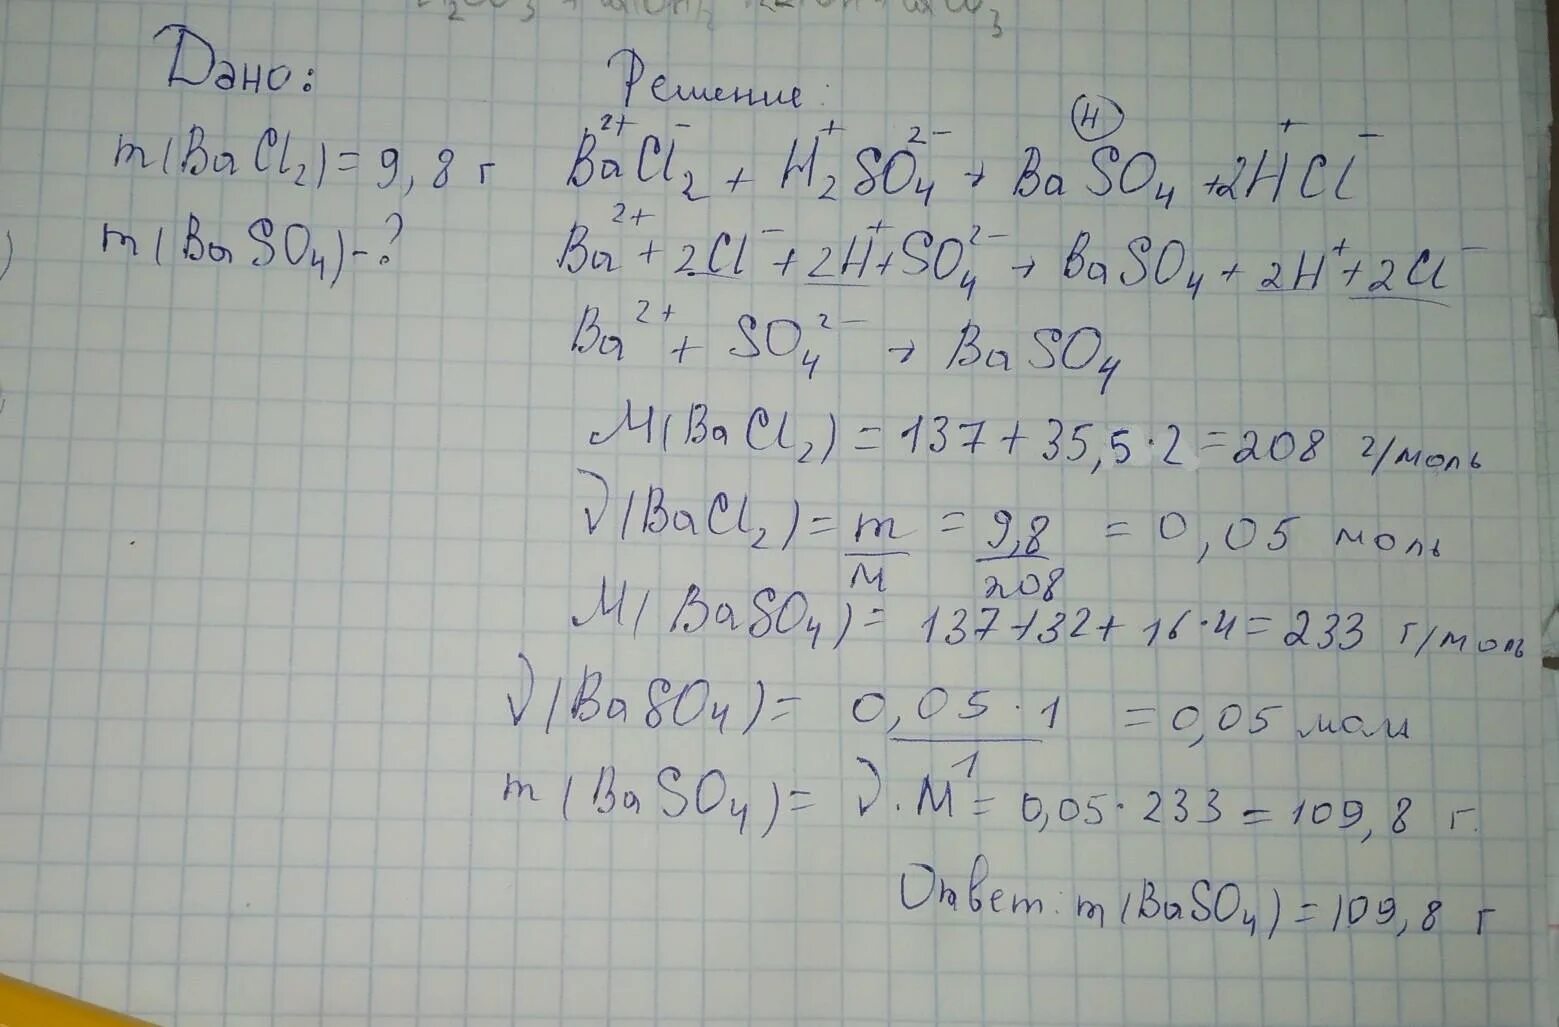 Дано:
Решение:
m(BaCl₂) = 9,8 г
m(BaSO₄) - ?
Ba²⁺Cl⁻₂ + H⁺₂SO₄²⁻ → BaSO₄ (н) + 2H⁺Cl⁻
Ba²⁺ + 2Cl⁻ + 2H⁺ + SO₄²⁻ → BaSO₄ + 2H⁺ + 2Cl⁻
Ba²⁺ + SO₄²⁻ → BaSO₄
M(BaCl₂) = 137 + 35,5 · 2 = 208 г/моль
ν(BaCl₂) = m/M = 9,8/208 = 0,05 моль
M(BaSO₄) = 137 + 32 + 16 · 4 = 233 г/моль
ν(BaSO₄) = 0,05 · 1/1 = 0,05 моль
m(BaSO₄) = ν · M = 0,05 · 233 = 109,8 г.
Ответ: m(BaSO₄) = 109,8 г